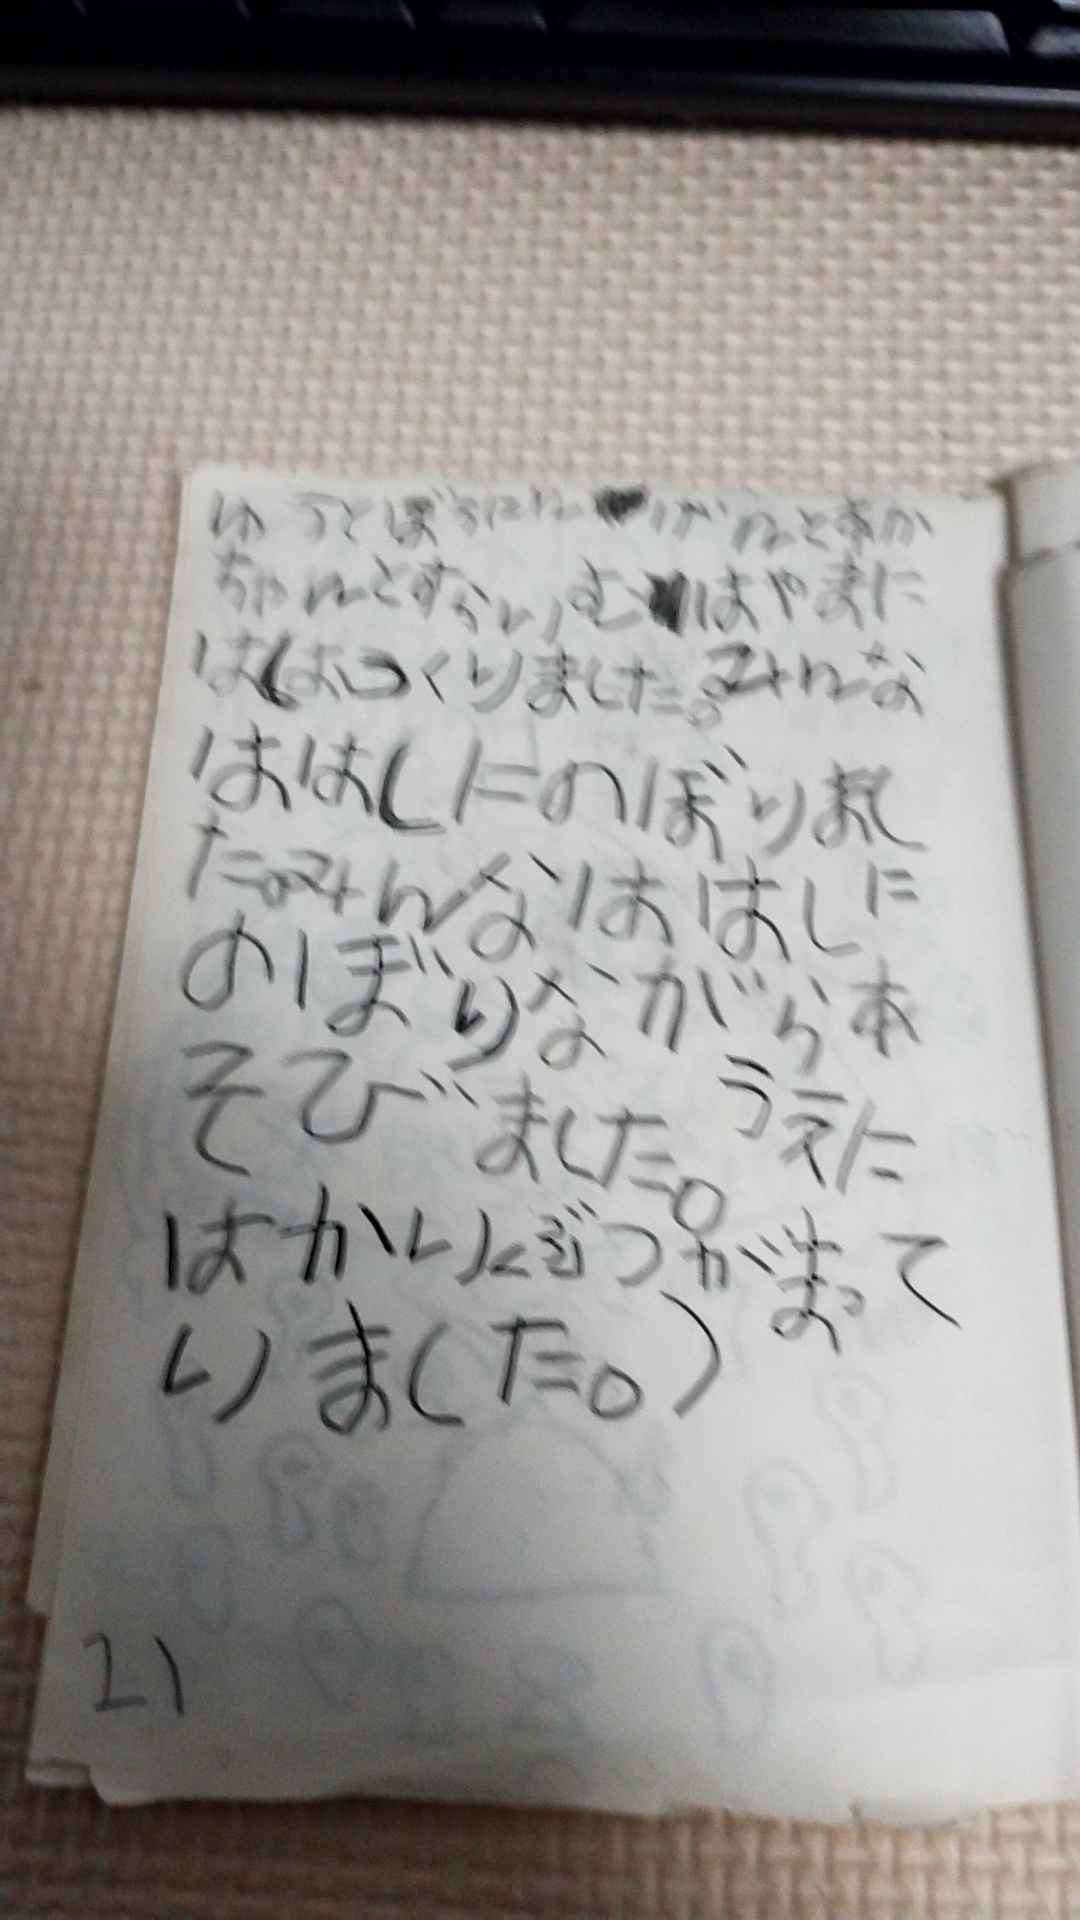 ゆうとぼうにん げんとすか
ちゃんとすらいむ はやまに
はしおつくりました。みんな
ははしにのぼりまし
た。みんなははしに
のぼりながら本
そびました。うえに
はかいぶつがまって
いました。)
21